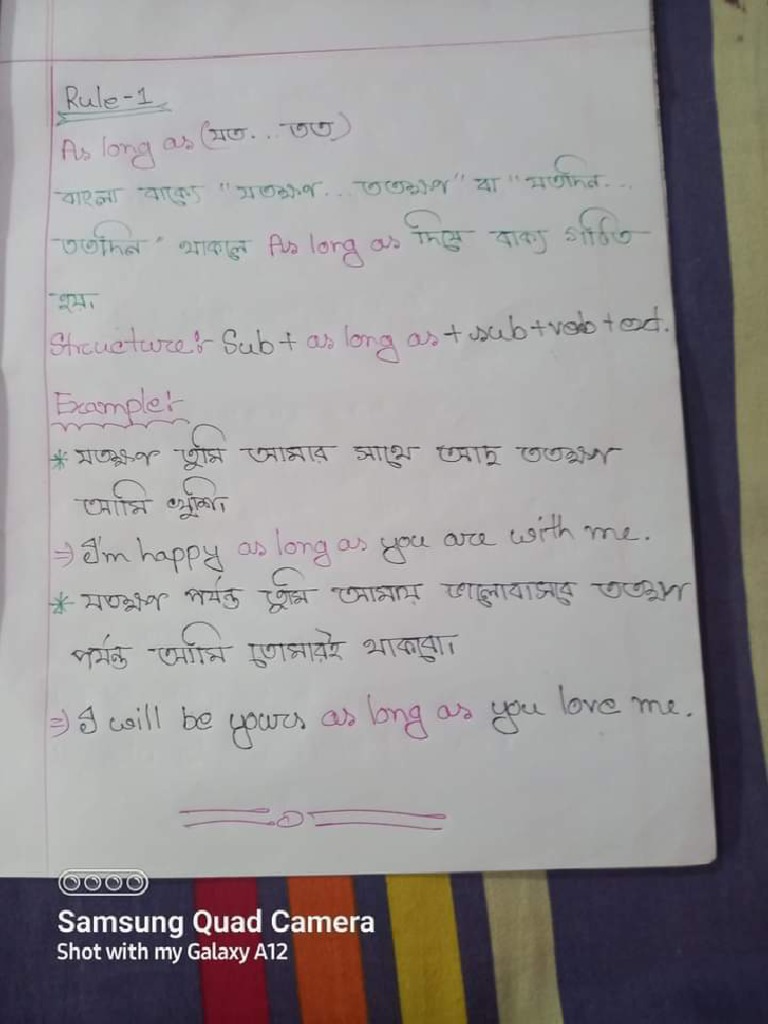 Rule-1
As long as (যত... তত)
বাংলা বাক্যে "যতক্ষণ... ততক্ষণ" বা "যতদিন...
ততদিন" থাকলে As long as দিয়ে বাক্য গঠিত
হয়।
Structure:- Sub + as long as + sub + verb + ext.
Example:-
* যতক্ষণ তুমি আমার সাথে আছ ততক্ষণ
আমি খুশি।
⇒ I'm happy as long as you are with me.
* যতক্ষণ পর্যন্ত তুমি আমায় ভালোবাসবে ততক্ষণ
পর্যন্ত আমি তোমারই থাকবো।
⇒ I will be yours as long as you love me.
Samsung Quad Camera
Shot with my Galaxy A12